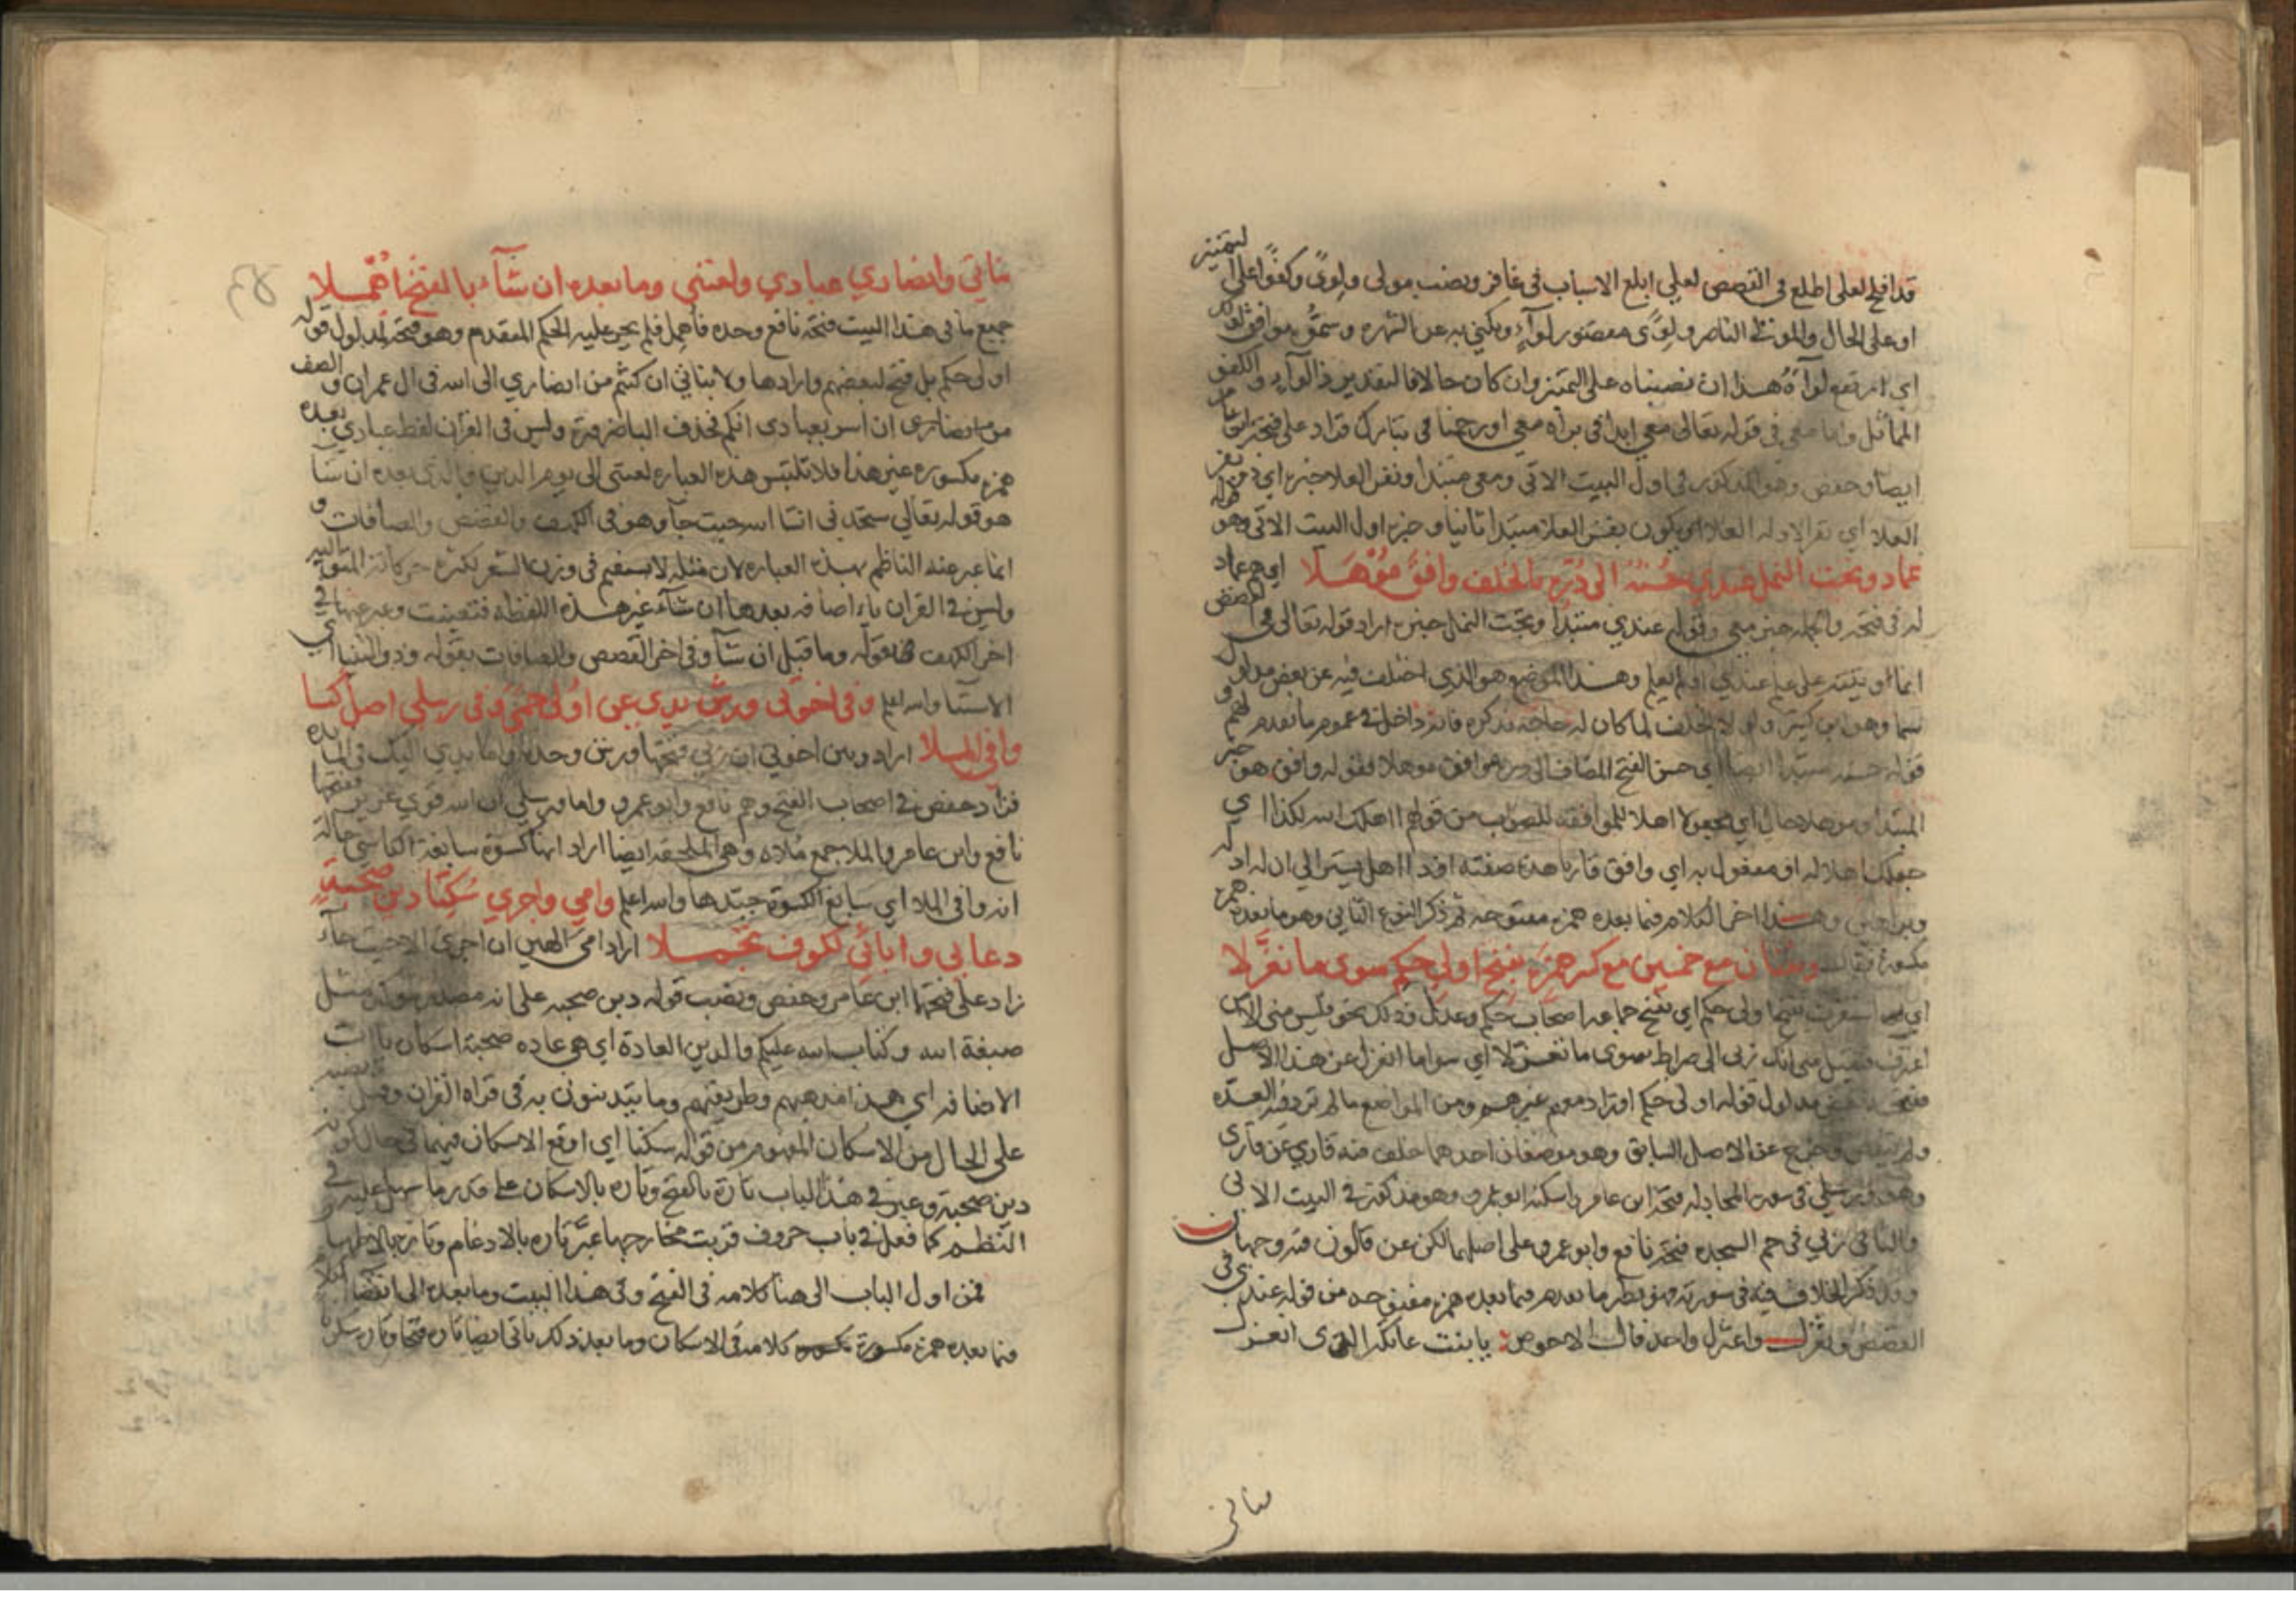 قد افلح لعلى اطلع فى القصص لعلى ابلغ الاسباب فى غافر ونصب مولى ولوى وكفوا على التمييز
او على الحال والمولى الناصر ولوى مقصور لوآء ويكنى به عن الشهره وسمو
اى ارتفع لوآؤه هذا ان نصبناه على التمييز وان كان حالا فالتقدير ذا لوآء والكفو
المماثل واما معى فى قوله تعالى معى ابدا فى براه معى اورحمنا فى تبارك فزاد على فتحه ابن عامر
ايضا وحفص وهو المذكور فى اول البيت الاتى ومعى مبتدا ونفر العلا خبره اى ذو نفر
العلا اى نفر الادله العلا او يكون نفر العلا مبتدا ثانيا وخبره اول البيت الاتى وهو قوله
عماد وتحت النمل عندي حسنه الى دره بالخلف وافق موهلا اى هم عماد
له فى فتحه والجمله خبر معى وقوله عندي مبتدا وتحت النمل خبره اراد قوله تعالى فى القصص
انما اوتيته على علم عندي اولم يعلم وهذا الموضع هو الذى اختلف فيه عن بعض مدلول
سما وهو ابن كثير ولولا الخلف لما كان له حاجه بذكره فانه داخل فى عموم ما تقدم لهم و
قوله حسنه مبتدا ايضا اى حسن الفتح المضاف الى دره وافق موهلا فقوله وافق هو خبر
المبتدا وموهلا حال اى مجعولا اهلا للموافقه للصواب من قولهم اهلك الله لكذا اى
جعلك اهلا له او مفعول به اى وافق قاريا هذه صفته
وبراهين وهذا اخر الكلام فيما بعده همزه مفتوحه ثم ذكر النوع الثانى وهو ما بعده همزه
مكسورة فقال وثنتان مع خمسين مع كسر همزة بفتح اولي حكم سوى ما تعزلا
اى استقرت بفتح اولى حكم اى بفتح جماعه اصحاب حكم وعدل وذلك نحو فليس منى الا من
اغترف فتقبل منى انك ربى الى صراط سوى ما تعزلا اى سوا ما انعزل عن هذا الاصل
ففتحه بعض مدلول قوله اولى حكم او زاد معهم غيرهم ومن المواضع ما لم ترد فيه العده
ولم ينقص وخرج عن الاصل السابق وهو موضعان احدهما خلف فيه قاري عن قارى
وهو ورسلى فى سورة المجادله فتحه ابن عامر واسكنه ابو عمرو وهو مذكور فى البيت الاتى
والثانى ربى فى حم السجده فتحه نافع وابو عمرو على اصلهما لكن عن قالون فيه وجهان
وقد ذكر الخلاف فيه فى سورته فهو نظير ما تقدم فيما بعده همزه مفتوحه من قوله عندي فى
القصص وتعزل واعتزل واحد قال الاحوص يا بنت عاتكه الذى اتعزل
بناتى
بناتي وانصاري عبادي ولعنتي وما بعده ان شآء بالفتح اهملا
جميع ما فى هذا البيت فتحه نافع وحده فاهمل فلم يجر عليه الحكم المتقدم وهو فتحه لمدلول قوله
اولى حكم بل فتح لبعضهم واراد هاولا بناتى ان كنتم من انصاري الى الله فى ال عمران والصف
من انصارى ان اسر بعبادى انكم فحذف البا ضرورة وليس فى القران لفظ عبادى بعده
همزه مكسوره غير هذا فلا تلتبس هذه العباره لعنتى الى يوم الدين والذى بعده ان شا
هو قوله تعالى ستجدنى ان شا الله حيث جآ وهو فى الكهف والقصص والصافات و
انما عبر عنه الناظم بهذه العباره لان مثله لا يستقيم فى وزن الشعر لكثرة حركاته المتواليه
وليس فى القران ياء اضافه بعدها ان شآء غير هذه اللفظه فتعينت وعبر عنها فى
اخر الكهف بقوله وما قبل ان شآ وفى اخر القصص والصافات بقوله وذو الثنيا اى
الاستثنا والله اعلم وفى اخوتى ورش يدي عن اولى حمى وفى رسلي اصل كسا
وافي الملا اراد وبين اخوتى ان ربى فتحها ورش وحده واما يدي اليك فى المايده
فزاد حفص فى اصحاب الفتح وهم نافع وابو عمرو واما ورسلى ان الله قوي عزيز ففتحها
نافع وابن عامر والملا جمع ملاه وهى الملحفه ايضا اراد انها كسوة سابغة الكاسى حاله
انه وافى الملا اى سابغ الكسوة جيدها والله اعلم وامي واجري سكنا دين صحبة
دعاىي وابائي لكوف تجملا اراد امى الهين ان اجرى الا حيث جآء
زاد على فتحها ابن عامر وحفص ونصب قوله دين صحبه على انه مصدر موكد مثل
صبغة الله وكتاب الله عليكم والدين العادة اى هى عاده صحبة اسكان ياات
الاضافه اى هذا مذهبهم وطريقتهم وما يتدينون به فى قراه القران
على الحال من الاسكان المفهوم من قوله سكنا اى اوقع الاسكان فيهما فى حال كونه
دين صحبة وعبر فى هذا الباب تارة بالفتح وتاره بالاسكان على قدر ما سهل عليه فى
النظم كما فعل فى باب حروف قربت مخارجها عبر تاره بالادغام وتاره بالاظهار
فمن اول الباب الى هنا كلامه فى الفتح وفى هذا البيت وما بعده الى انقضا الكلام
فيما بعده همزه مكسورة كلامه فى الاسكان وما بعد ذلك ياتى ايضا تاره فتحا وتاره سكونا